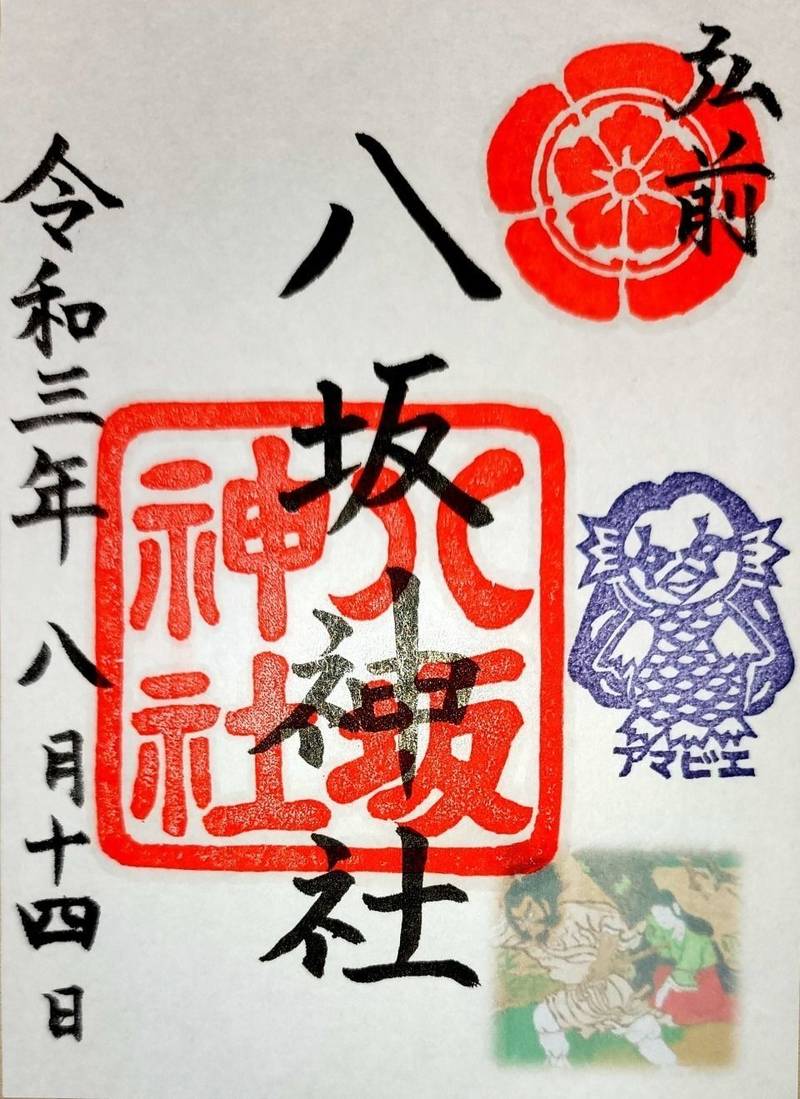 弘前
八坂神社
八坂
神社
アマビエ
令和三年八月十四日